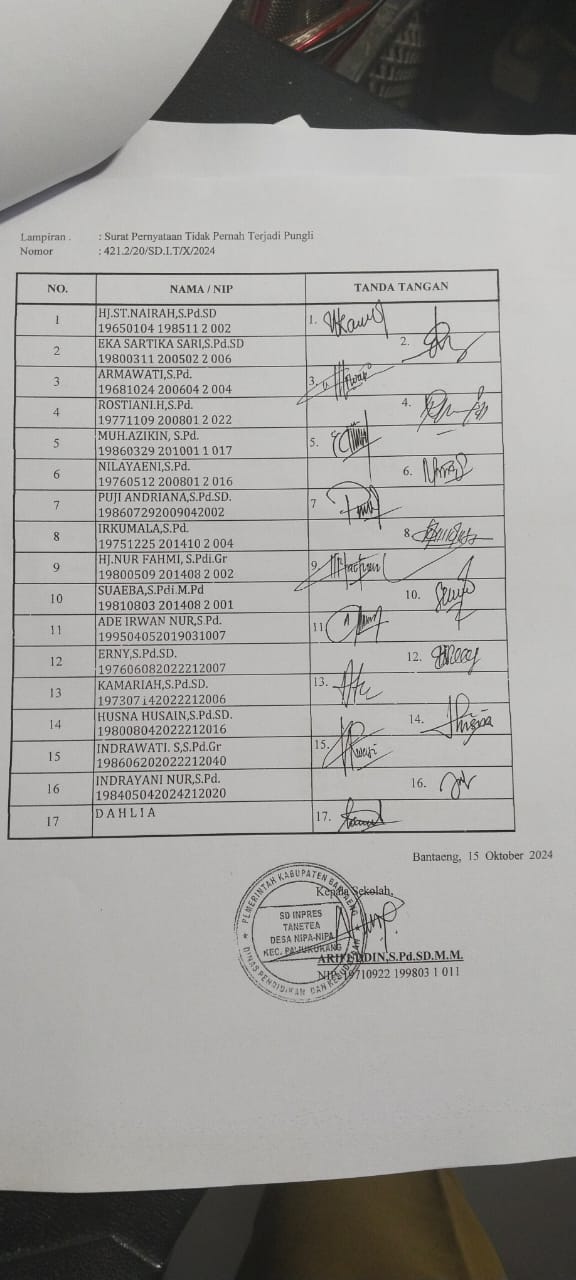 Lampiran . : Surat Pernyataan Tidak Pernah Terjadi Pungli
Nomor : 421.2/20/SD.I.T/X/2024
NO. NAMA / NIP TANDA TANGAN
1 HJ.ST.NAIRAH,S.Pd.SD 1.
19650104 198511 2 002
2 EKA SARTIKA SARI,S.Pd.SD 2.
19800311 200502 2 006
3 ARMAWATI,S.Pd. 3.
19681024 200604 2 004
4 ROSTIANI.H,S.Pd. 4.
19771109 200801 2 022
5 MUH.AZIKIN, S.Pd. 5.
19860329 201001 1 017
6 NILAYAENI,S.Pd. 6.
19760512 200801 2 016
7 PUJI ANDRIANA,S.Pd.SD. 7
198607292009042002
8 IRKUMALA,S.Pd. 8
19751225 201410 2 004
9 HJ.NUR FAHMI, S.Pdi.Gr 9.
19800509 201408 2 002
10 SUAEBA,S.Pdi.M.Pd 10.
19810803 201408 2 001
11 ADE IRWAN NUR,S.Pd. 11
199504052019031007
12 ERNY,S.Pd.SD. 12.
197606082022212007
13 KAMARIAH,S.Pd.SD. 13.
197307142022212006
14 HUSNA HUSAIN,S.Pd.SD. 14.
198008042022212016
15 INDRAWATI. S,S.Pd.Gr 15.
198606202022212040
16 INDRAYANI NUR,S.Pd. 16.
198405042024212020
17 D A H L I A 17.
Bantaeng, 15 Oktober 2024
Kepala Sekolah,
PEMERINTAH KABUPATEN BANTAENG
SD INPRES
TANETEA
DESA NIPA-NIPA
KEC. PA'JUKUKANG
DINAS PENDIDIKAN DAN KEBUDAYAAN
ARIFUDDIN,S.Pd.SD.M.M.
NIP. 19710922 199803 1 011